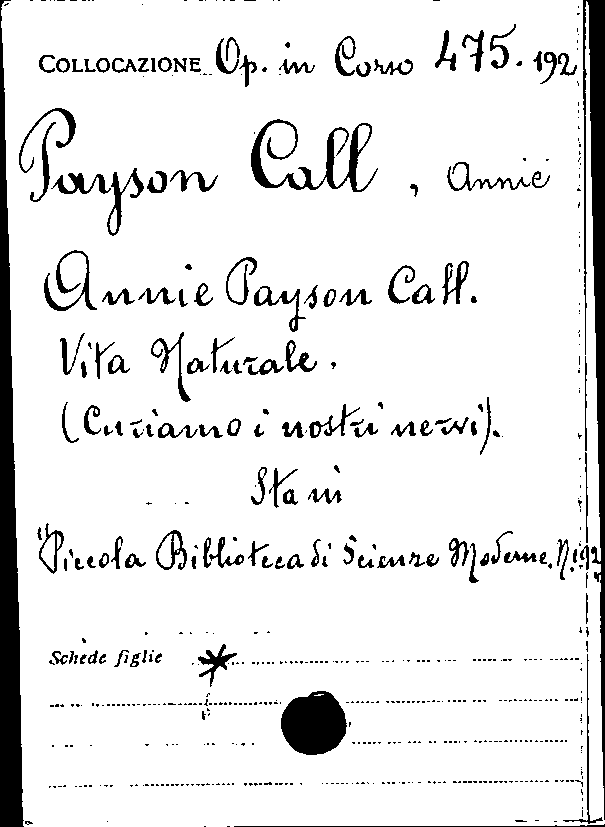 COLLOCAZIONE Op. in Corso 475. 192
Payson Call, Annie
Annie Payson Call.
Vita Naturale.
(Curiamo i nostri nervi).
Sta in
"Piccola Biblioteca di Scienze Moderne. N. 192"
Schede figlie